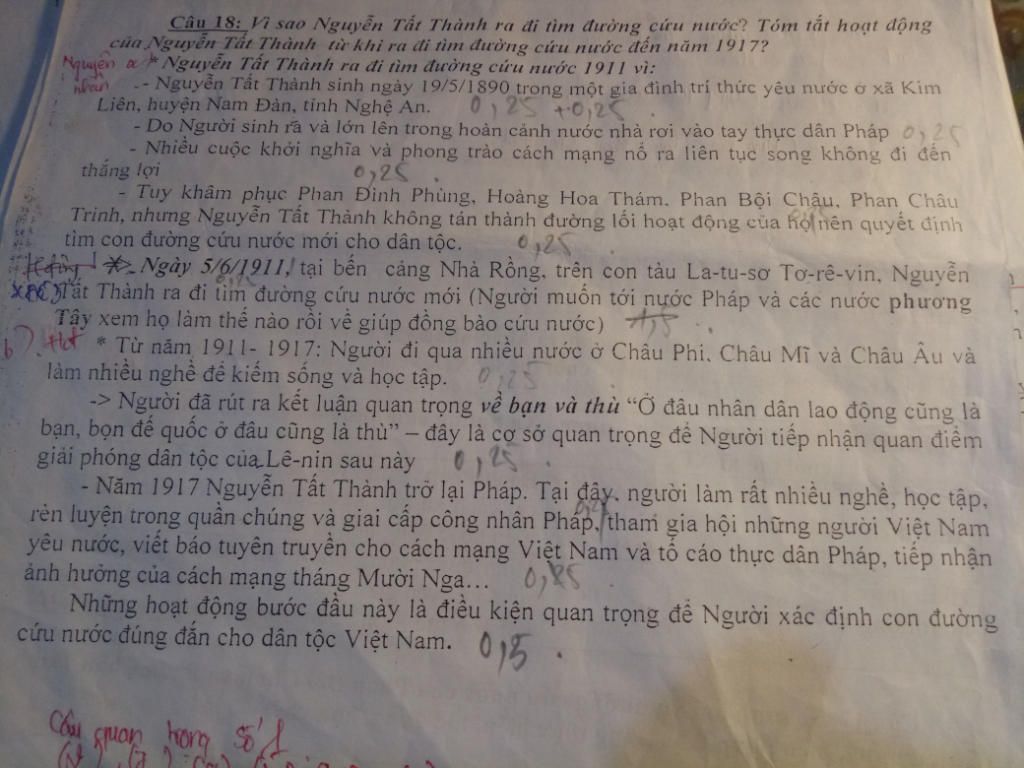 Câu 18: Vì sao Nguyễn Tất Thành ra đi tìm đường cứu nước? Tóm tắt hoạt động
của Nguyễn Tất Thành từ khi ra đi tìm đường cứu nước đến năm 1917?
Nguyên nhân * Nguyễn Tất Thành ra đi tìm đường cứu nước 1911 vì:
- Nguyễn Tất Thành sinh ngày 19/5/1890 trong một gia đình trí thức yêu nước ở xã Kim
Liên, huyện Nam Đàn, tỉnh Nghệ An. 0,25 + 0,25
- Do Người sinh ra và lớn lên trong hoàn cảnh nước nhà rơi vào tay thực dân Pháp 0,25
- Nhiều cuộc khởi nghĩa và phong trào cách mạng nổ ra liên tục song không đi đến
thắng lợi 0,25.
- Tuy khâm phục Phan Đình Phùng, Hoàng Hoa Thám, Phan Bội Châu, Phan Châu
Trinh, nhưng Nguyễn Tất Thành không tán thành đường lối hoạt động của họ nên quyết định
tìm con đường cứu nước mới cho dân tộc. 0,25.
* Ngày 5/6/1911, tại bến cảng Nhà Rồng, trên con tàu La-tu-sơ Tơ-rê-vin, Nguyễn
Tất Thành ra đi tìm đường cứu nước mới (Người muốn tới nước Pháp và các nước phương
Tây xem họ làm thế nào rồi về giúp đồng bào cứu nước)
* Từ năm 1911- 1917: Người đi qua nhiều nước ở Châu Phi, Châu Mĩ và Châu Âu và
làm nhiều nghề để kiếm sống và học tập. 0,25
-> Người đã rút ra kết luận quan trọng về bạn và thù “Ở đâu nhân dân lao động cũng là
bạn, bọn đế quốc ở đâu cũng là thù” – đây là cơ sở quan trọng để Người tiếp nhận quan điểm
giải phóng dân tộc của Lê-nin sau này 0,25.
- Năm 1917 Nguyễn Tất Thành trở lại Pháp. Tại đây, người làm rất nhiều nghề, học tập,
rèn luyện trong quần chúng và giai cấp công nhân Pháp, tham gia hội những người Việt Nam
yêu nước, viết báo tuyên truyền cho cách mạng Việt Nam và tố cáo thực dân Pháp, tiếp nhận
ảnh hưởng của cách mạng tháng Mười Nga... 0,25
Những hoạt động bước đầu này là điều kiện quan trọng để Người xác định con đường
cứu nước đúng đắn cho dân tộc Việt Nam. 0,5.
Câu quan trọng số 1